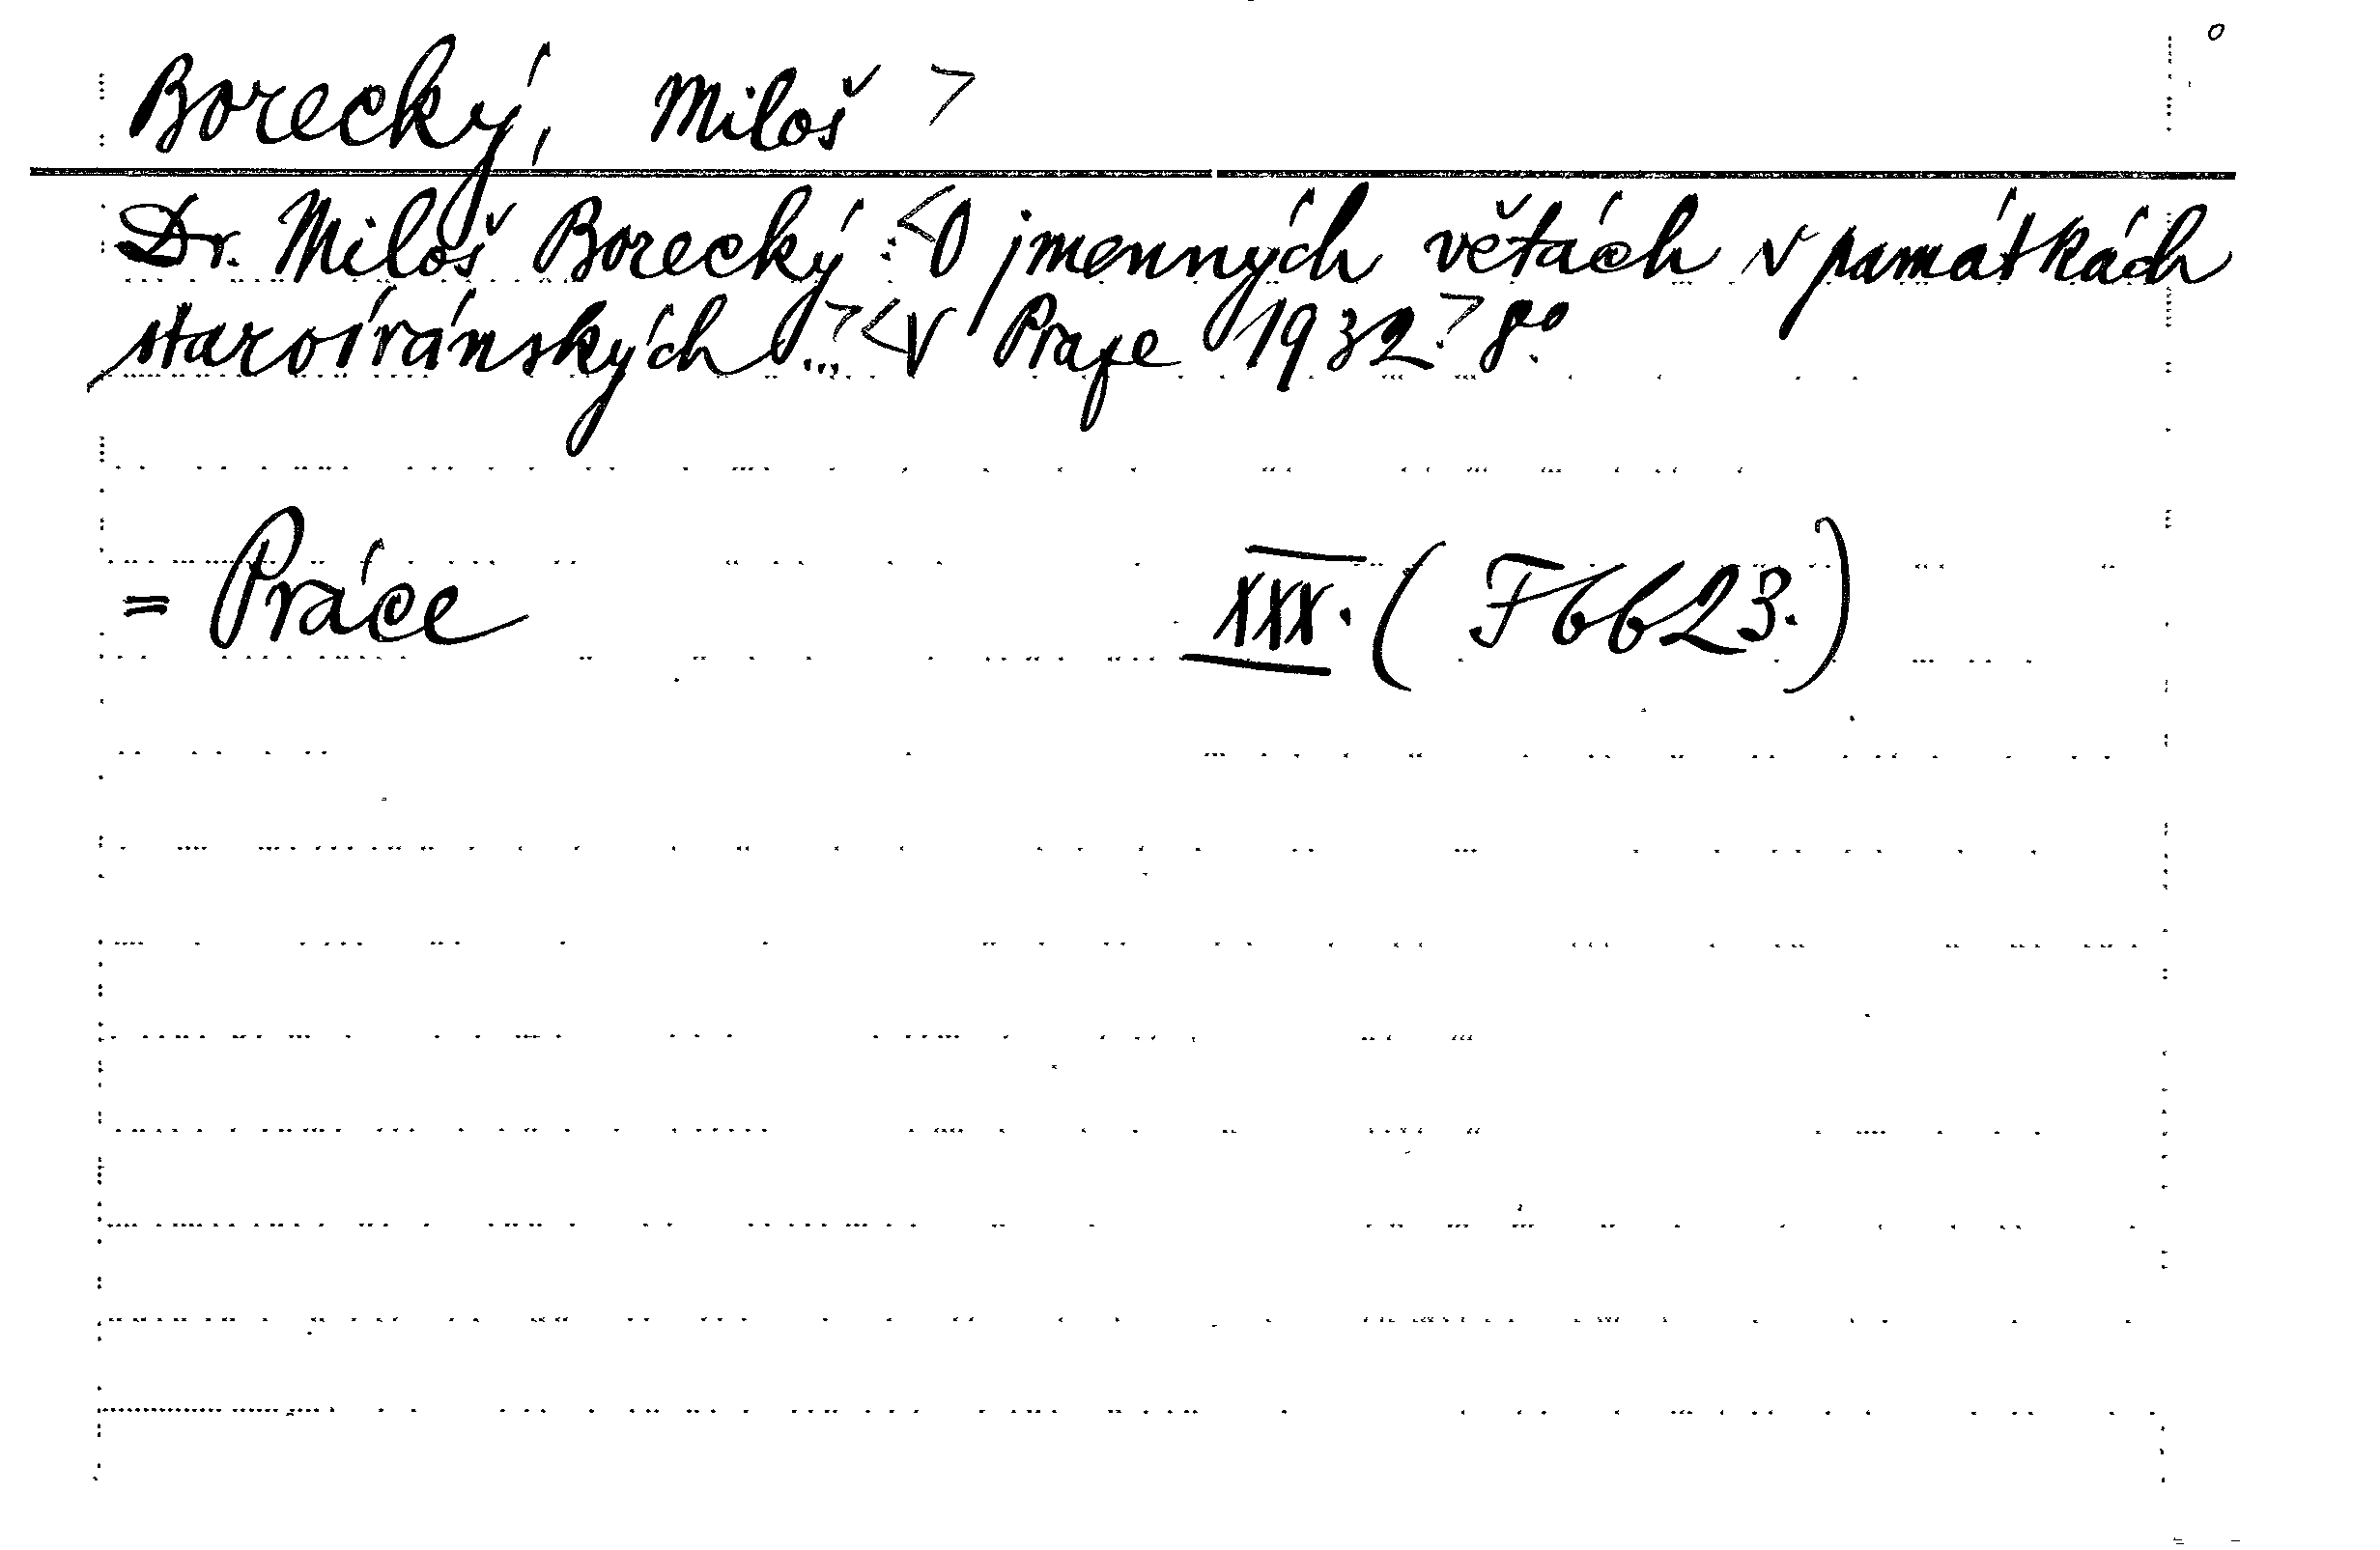 Borecký, Miloš >
Dr. Miloš Borecký: <O jmenných větách v památkách
staroíránských ...> <V Praze 1932> 8°.
= Práce XXX. (Fbb23.)